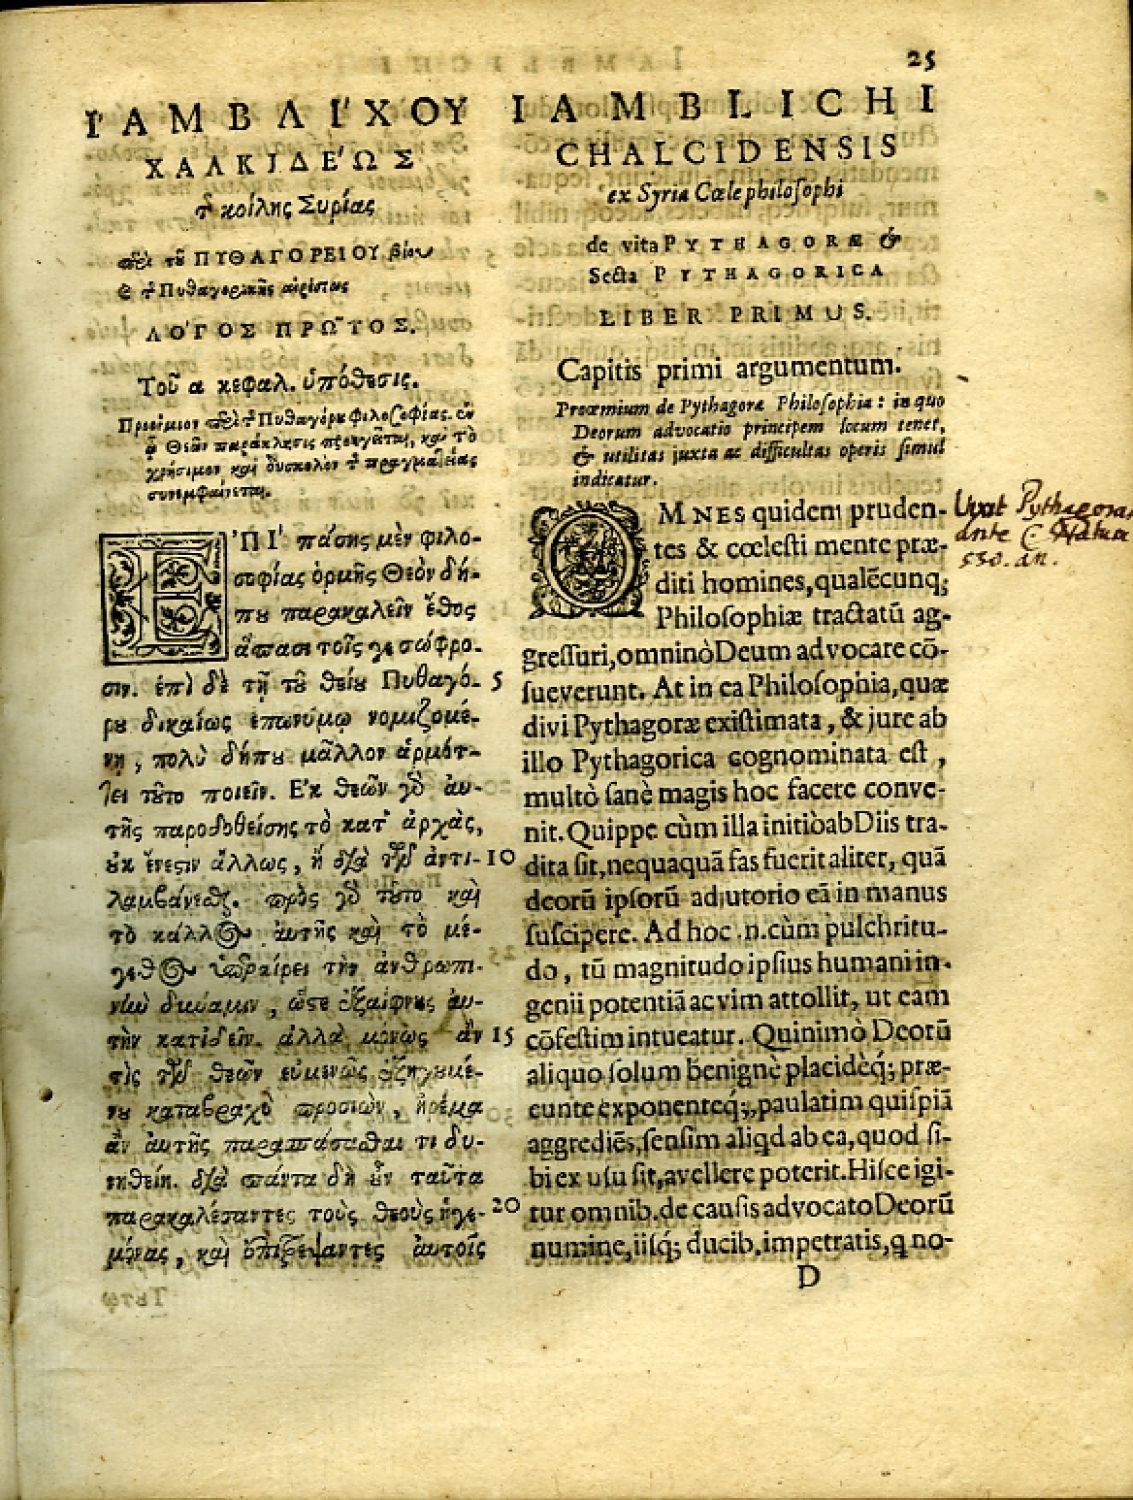 25
ΙΑΜΒΛΙΧΟΥ
ΧΑΛΚΙΔΕΩΣ
τ κοίλης Συρίας
περὶ τοῦ ΠΥΘΑΓΟΡΕΙΟΥ βίου
ϗ τ Πυθαγορικῆς αἱρέσεως
ΛΟΓΟΣ ΠΡΩΤΟΣ.
Τοῦ α κεφαλ. ὑπόθεσις.
Προοίμιον περὶ τ Πυθαγόρου φιλοσοφίας. ἐν
ᾧ Θεῶν παράκλησις προηγεῖται, καὶ τὸ
χρήσιμον καὶ δύσκολον τ πραγματείας
συνεμφαίνεται.
ἘΠΙ' πάσης μὲν φιλο-
σοφίας ὁρμῆς Θεὸν δή-
που παρακαλεῖν ἔθος
ἅπασι τοῖς γε σώφρο-
σιν. ἐπὶ δὲ τῇ τοῦ θείου Πυθαγό- 5
ρου δικαίως ἐπωνύμῳ νομιζομέ-
νῃ, πολὺ δήπου μᾶλλον ἁρμότ-
τει τοῦτο ποιεῖν. Ἐκ θεῶν γὰρ αὐ-
τῆς παραδοθείσης τὸ κατ' ἀρχὰς,
οὐκ ἔνεστιν ἄλλως, ἢ διὰ τῶν ἀντι- 10
λαμβάνεσθαι. πρὸς γὰρ τοῦτο καὶ
τὸ κάλλος αὐτῆς καὶ τὸ μέ-
γεθος ὑπεραίρει τὴν ἀνθρωπί-
νην δύναμιν, ὥστε ἐξαίφνης αὐ-
τὴν κατιδεῖν. ἀλλὰ μόνως ἄν 15
τις τῶν θεῶν εὐμενῶς ἐξηγουμέ-
νου καταβραχὺ προσιὼν, ἠρέμα
ἂν αὐτῆς παρασπάσασθαί τι δυ-
νηθείη. διὰ πάντα δὴ οὖν ταῦτα
παρακαλέσαντες τοὺς θεοὺς ἡγε- 20
μόνας, καὶ ἐπιτρέψαντες αὐτοῖς
IAMBLICHI
CHALCIDENSIS
ex Syria Cœle philosophi
de vita PYTHAGORÆ &
Secta PYTHAGORICA
LIBER PRIMUS.
Capitis primi argumentum.
Proœmium de Pythagoræ Philosophia: in quo
Deorum advocatio principem locum tenet,
& utilitas juxta ac difficultas operis simul
indicatur.
OMNES quidem pruden-
tes & cœlesti mente præ-
diti homines, qualēcunq;
Philosophiæ tractatū ag-
gressuri, omninò Deum advocare cō-
sueverunt. At in ea Philosophia, quæ
divi Pythagoræ existimata, & jure ab
illo Pythagorica cognominata est,
multò sanè magis hoc facere conve-
nit. Quippe cùm illa initiò ab Diis tra-
dita sit, nequaquā fas fuerit aliter, quā
deorū ipsorū adjutorio eā in manus
suscipere. Ad hoc .n. cùm pulchritu-
do, tū magnitudo ipsius humani in-
genii potentiā ac vim attollit, ut eam
cōfestim intueatur. Quinimò Deorū
aliquo solum benignè placidèq; præ-
eunte exponenteq;, paulatim quispiā
aggrediēs, sensim aliqd ab ea, quod si-
bi ex usu sit, avellere poterit. Hisce igi-
tur omnib. de causis advocato Deorū
numine, iisq; ducib. impetratis, q no-
D
Vixit Pythagoras
ante C. Natum
550. an.